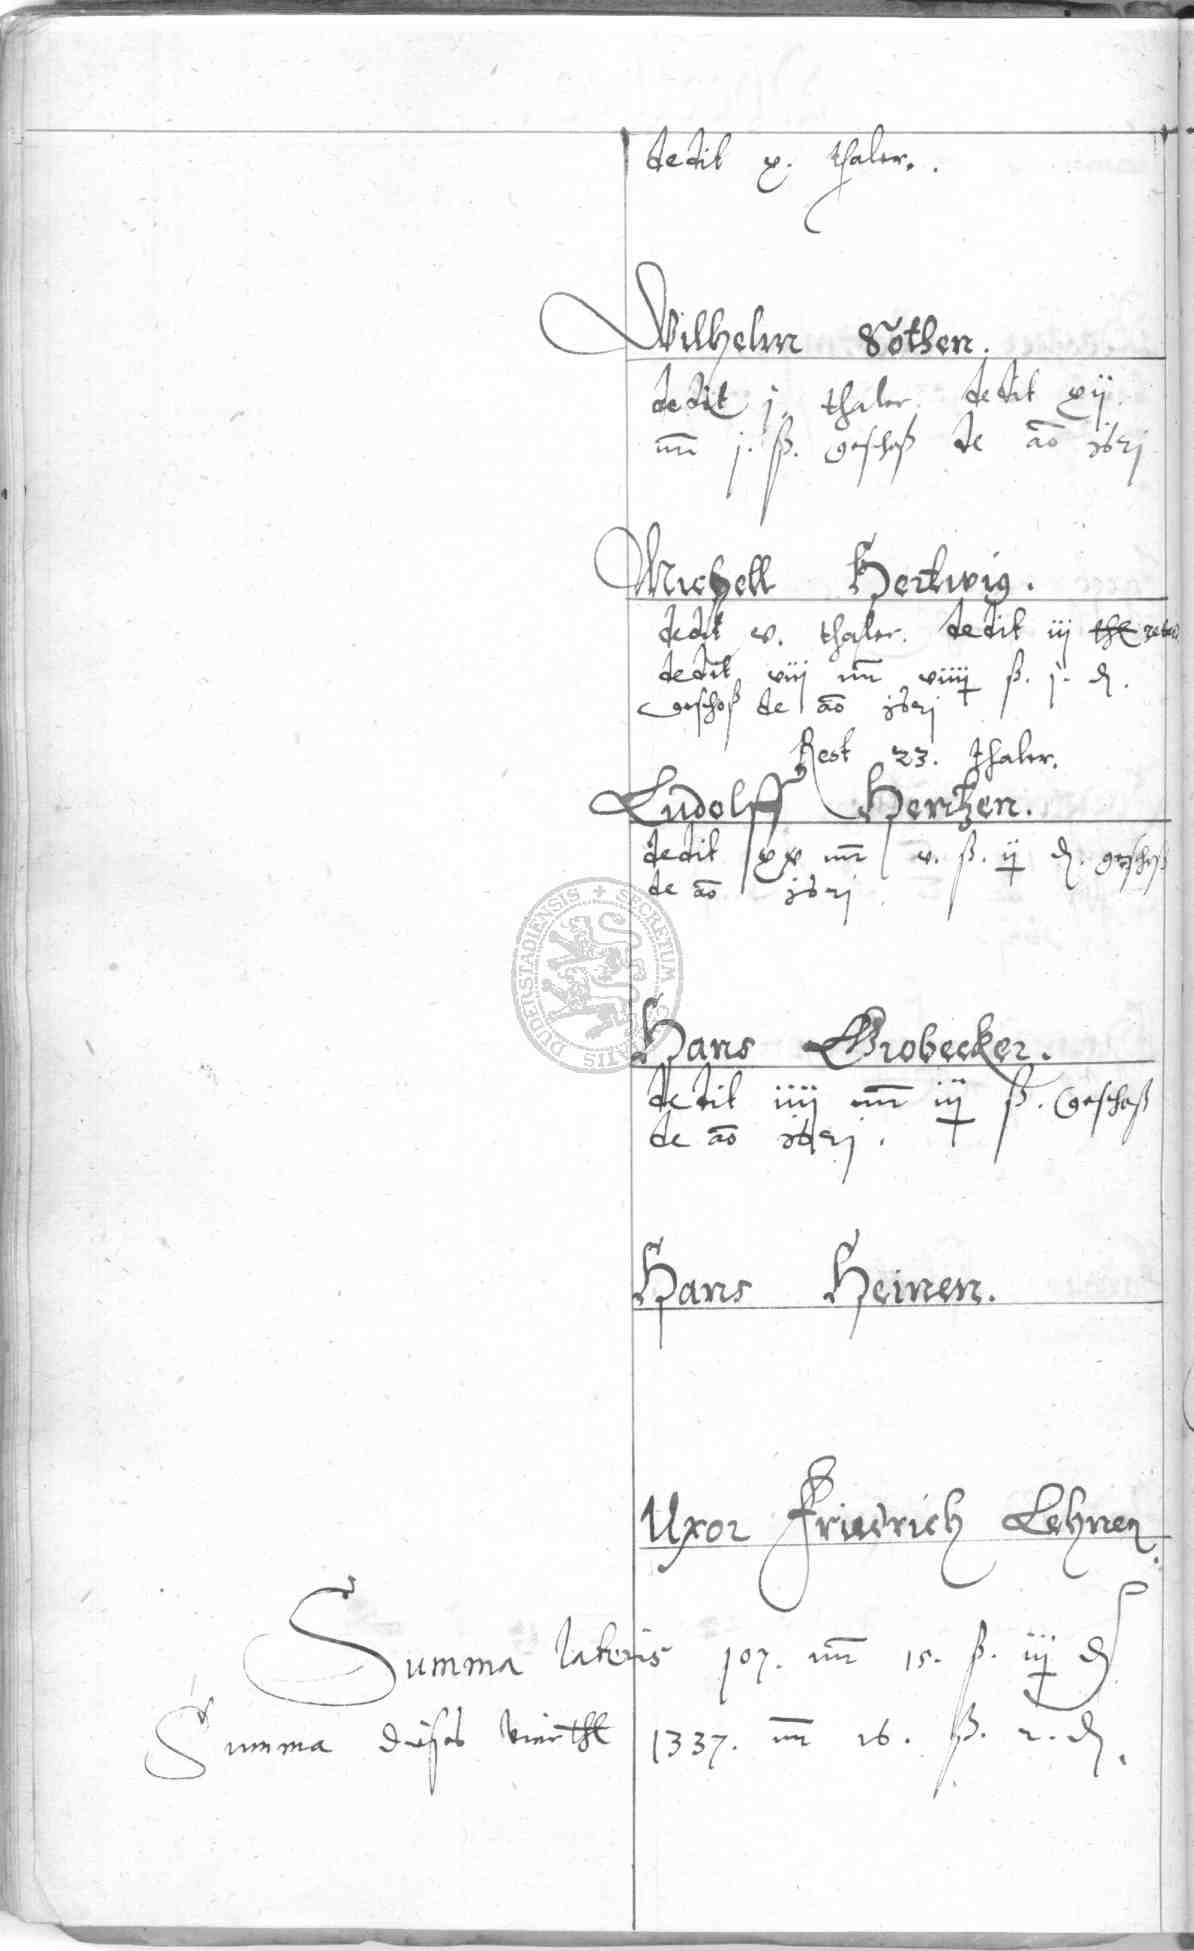 dedit x. thaler.
Wilhelm Nothen.
dedit j. thaler. dedit xij
mr j. ß. geschoß de ao 1621
Michell Hertwig.
dedit v. thaler. dedit iij thl
dedit viij mr viiij ß. j. d.
geschoß de ao 1621
Rest 23. thaler.
Ludolff Hentzen.
dedit xv mr v. ß. ij d. geschoß
de ao 1621
SECRETUM CIVITATIS DUDERSTADIENSIS
Hans Grobecker.
dedit iiij mr iij ß. Geschoß
de ao 1621.
Hans Heinen.
Uxor Friedrich Lehnen.
Summa lateris 107. mr 15. ß. iij d
Summa dieses vierthl 1337. mr 16. ß. 2. d.